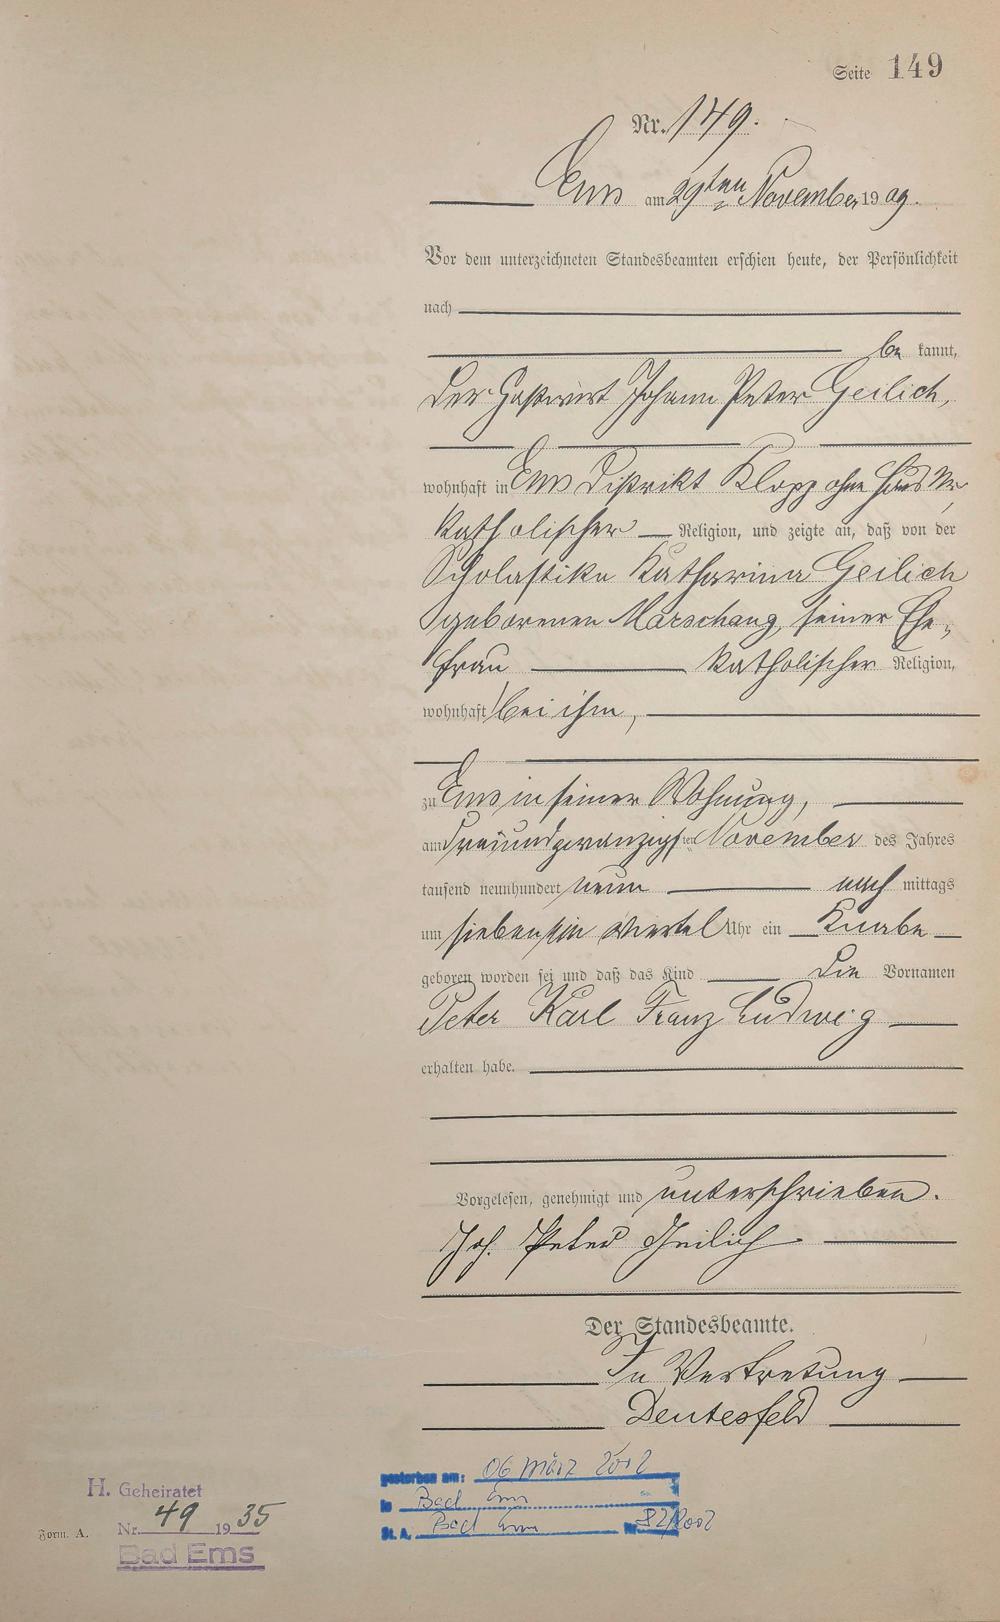 Seite 149
Nr. 149.
Ems am 29ten November 1909.
Vor dem unterzeichneten Standesbeamten erschien heute, der Persönlichkeit
nach
be kannt,
der Gastwirt Johann Peter Geilich,
wohnhaft in Ems Distrikt Klopp ohne Haus Nr,
katholischer Religion, und zeigte an, daß von der
Scholastika Katharina Geilich
geborenen Marschang, seiner Ehe-
frau katholischer Religion,
wohnhaft bei ihm,
zu Ems in seiner Wohnung,
am dreiundzwanzigsten November des Jahres
tausend neunhundert neun nach mittags
um sieben ein viertel Uhr ein Knabe
geboren worden sei und daß das Kind die Vornamen
Peter Karl Franz Ludwig
erhalten habe.
Vorgelesen, genehmigt und unterschrieben.
Joh. Peter Geilich
Der Standesbeamte.
In Vertretung
Deutesfeld
H. Geheiratet
Form. A. Nr. 49 1935
Bad Ems
gestorben am: 06 März 2002
in Bad Ems
St. A. Bad Ems Nr. 82/2002